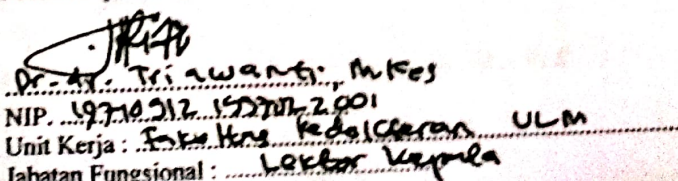 Dr. dr. Triawanti, M.Kes
NIP. 19710912 199702 2 001
Unit Kerja : Fakultas Kedokteran ULM
Jabatan Fungsional : Lektor Kepala